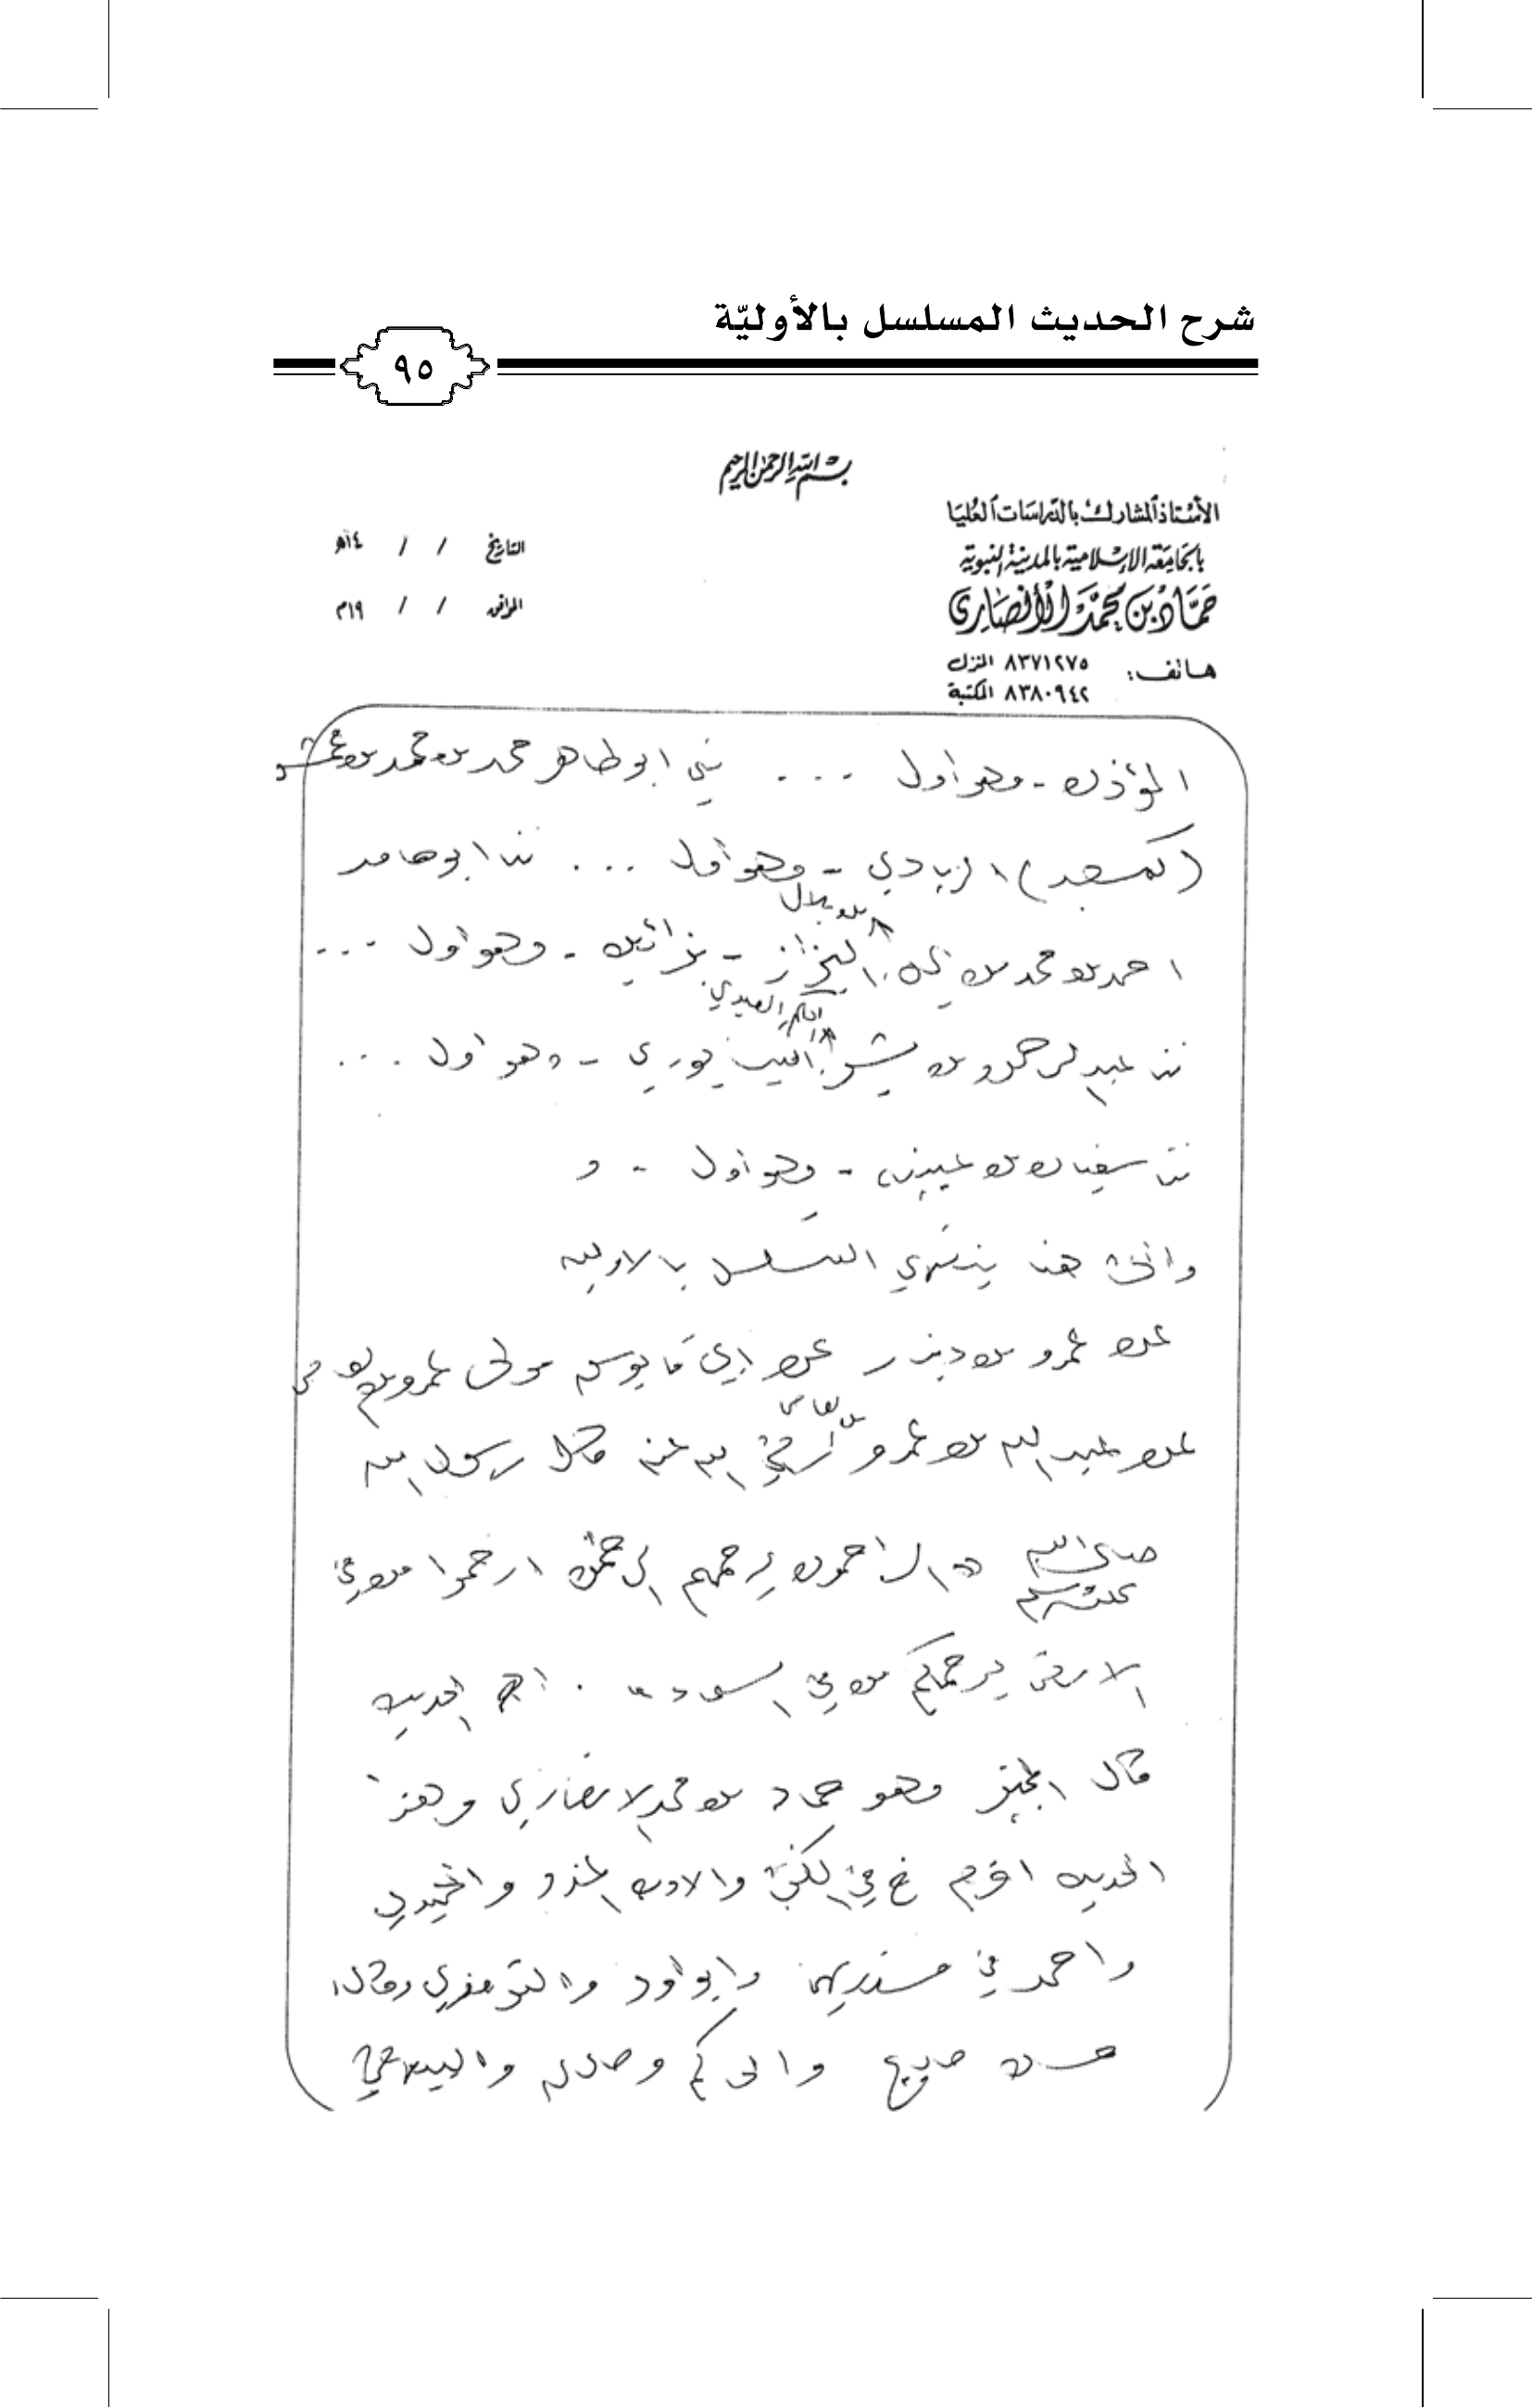 شرح الحديث المسلسل بالأوليّة
٩٥
بسم الله الرحمن الرحيم
الأستاذ المشارك بالدراسات العليا
بالجامعة الإسلامية بالمدينة النبوية
حمّاد بن محمّد الأنصاري
هاتف: ٨٣٧١٢٧٥ المنزل
٨٣٨٠٩٤٢ المكتبة
التاريخ / / ١٤هـ
الموافق / / ١٩م
المؤذن - وهو أول ... ثني ابو طاهر محمد بن محمد بن محمش
(كمسجد) الزيادي - وهو أول ... ثنا ابو حامد
احمد بن محمد بن يحيى بن بلال البزاز - بزائين - وهو أول ...
ثنا عبد الرحمن بن بشر بن الحكم العبدي النيسابوري - وهو أول ...
ثنا سفيان بن عيينة - وهو أول - و
والى هنا ينتهي التسلسل بالاولية
عن عمرو بن دينار عن ابي قابوس مولى عمرو بن العاص
عن عبد الله بن عمرو بن العاص رضي الله عنه قال رسول الله
صلى الله عليه وسلم الراحمون يرحمهم الرحمن ارحموا من في
الارض يرحمكم من في السماء . اهـ الحديث
قال المجيز وهو حماد بن محمد الانصاري وهذا
الحديث اخرجه خ في الكنى والادب المفرد والحميدي
واحمد في مسنديهما وابو داود والترمذي وقال
حسن صحيح والحاكم وصححه والبيهقي